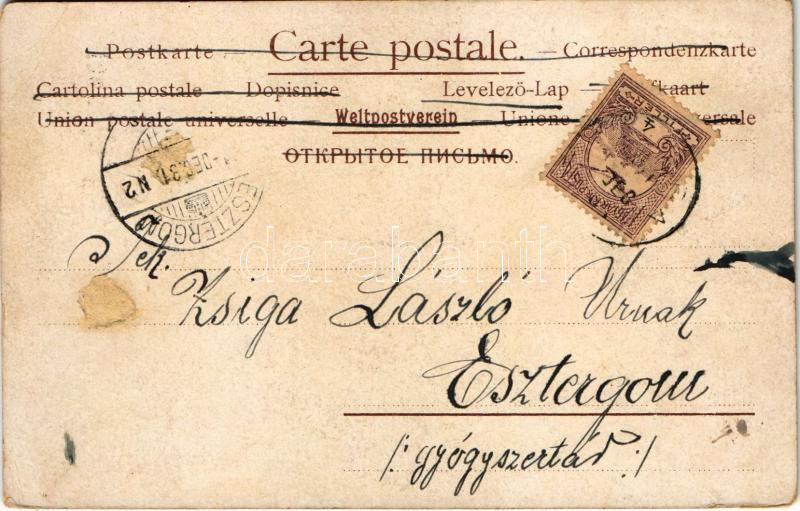 Postkarte — Carte postale. — Correspondenzkarte
Cartolina postale — Dopisnice Levelező-Lap —
Union postale universelle Weltpostverein — Unione
ОТКРЫТОЕ ПИСЬМО.
4
FILLÉR
DEC. 31. N2
ESZTERGOM
Tek.
Zsiga László Urnak
Esztergom
/: gyógyszertár :/
darabanth